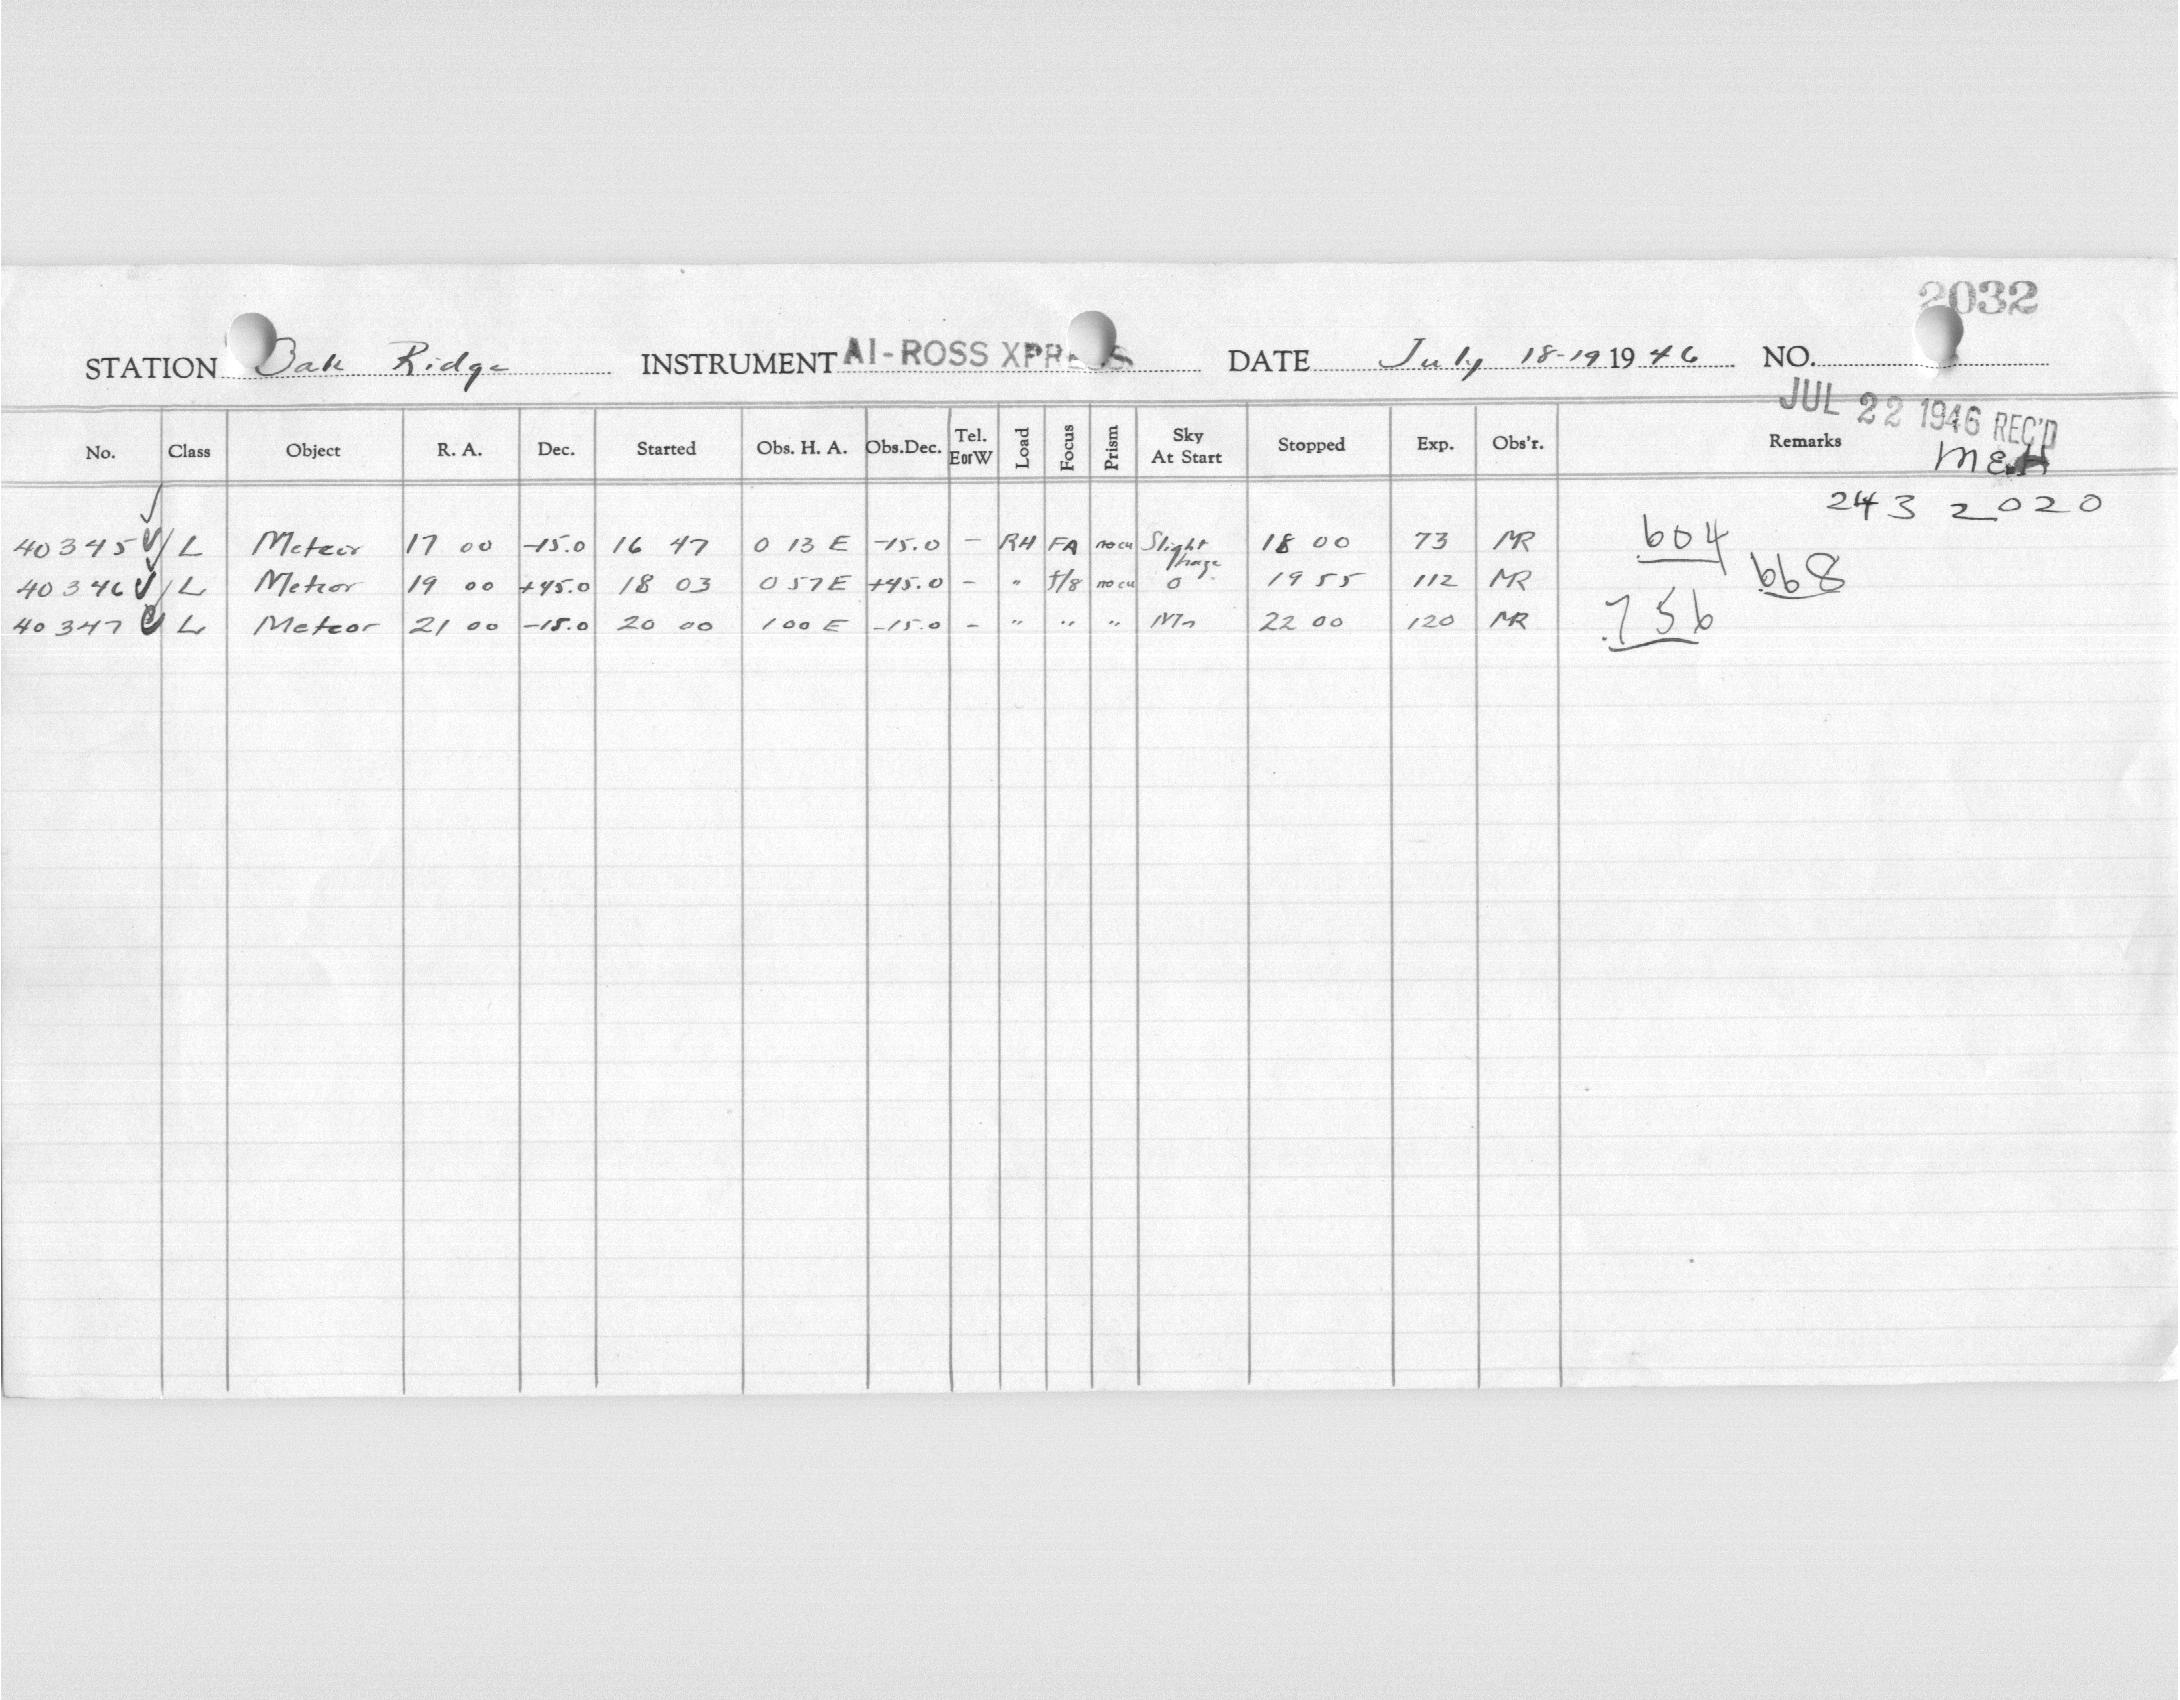 2032
STATION Oak Ridge INSTRUMENT AI-ROSS XPRESS DATE July 18-19 1946 NO.
JUL 22 1946 REC'D
No. Class Object R. A. Dec. Started Obs. H. A. Obs.Dec. Tel. EorW Load Focus Prism Sky At Start Stopped Exp. Obs'r. Remarks
MEH
243 2020
40345 L Meteor 17 00 -15.0 16 47 0 13 E -15.0 - RH FA no cu Slight haze 18 00 73 MR .604
40346 L Meteor 19 00 +45.0 18 03 0 57 E +45.0 - " f/8 no cu 0 19 55 112 MR .668
40347 L Meteor 21 00 -15.0 20 00 1 00 E -15.0 - " " " 22 00 120 MR .756